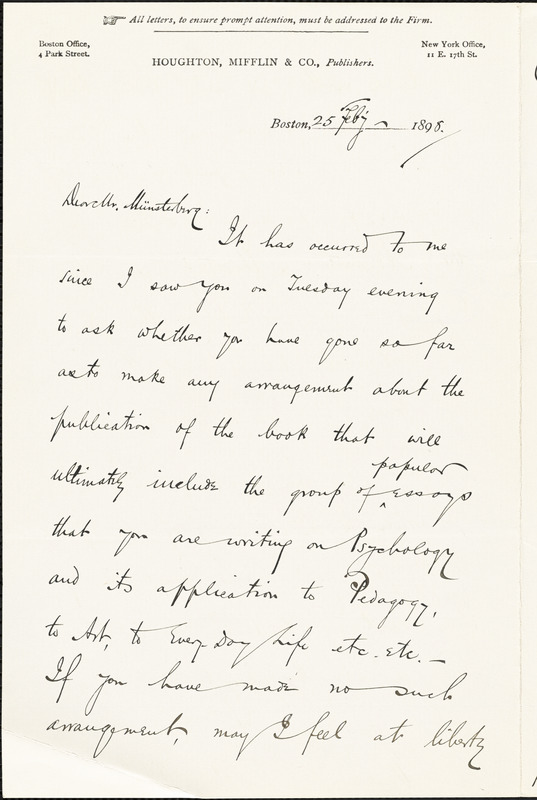 All letters, to ensure prompt attention, must be addressed to the Firm.
Boston Office,
4 Park Street.
New York Office,
11 E. 17th St.
HOUGHTON, MIFFLIN & CO., Publishers.
Boston, 25 Feby 1898.
Dear Mr. Münsterberg:
It has occurred to me
since I saw you on Tuesday evening
to ask whether you have gone so far
as to make any arrangement about the
publication of the book that will
popular
ultimately include the group of ‸ essays
that you are writing on Psychology
and its application to Pedagogy,
to Art, to Every-Day Life etc. etc. —
If you have made no such
arrangement, may I feel at liberty